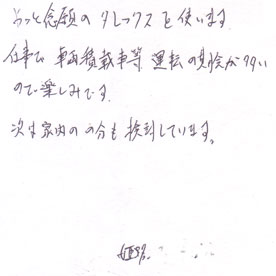 やっと念願のタレックスを使います。
仕事で車両積載車等運転の機会が多い
ので楽しみです。
次は家内の分も検討しています。